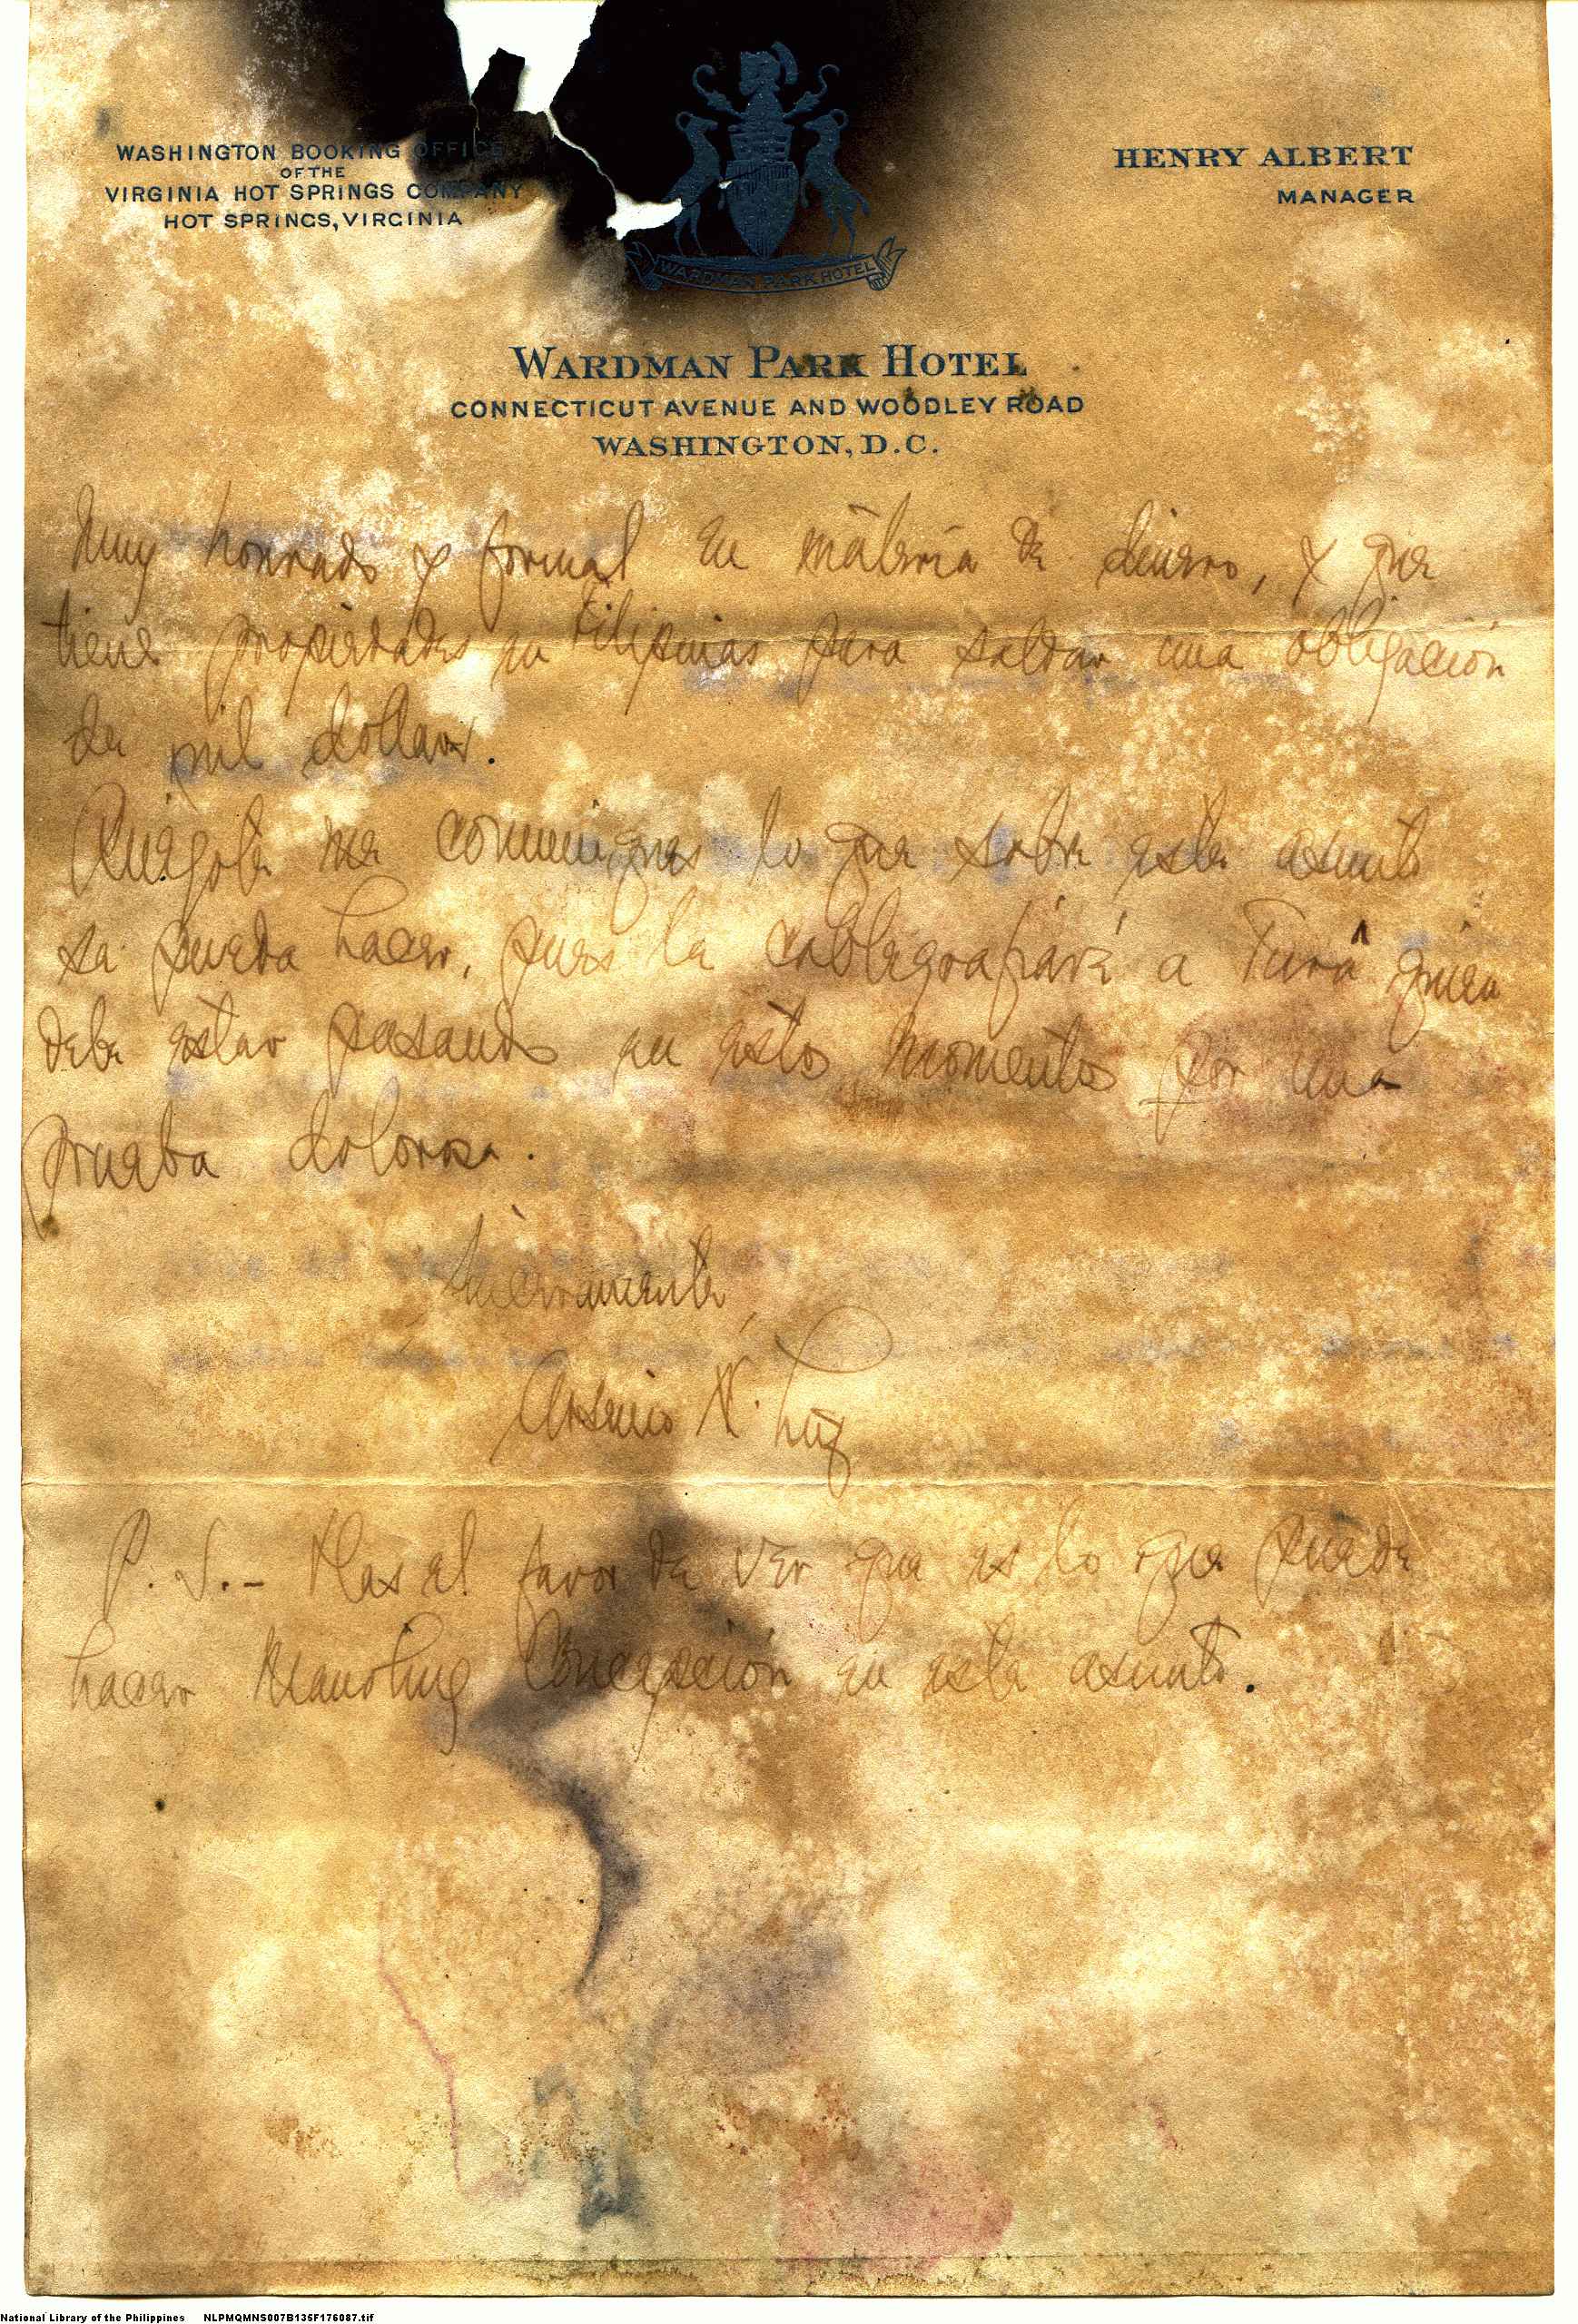 WASHINGTON BOOKING OFFICE
OF THE
VIRGINIA HOT SPRINGS COMPANY
HOT SPRINGS, VIRGINIA
WARDMAN PARK HOTEL
HENRY ALBERT
MANAGER
WARDMAN PARK HOTEL
CONNECTICUT AVENUE AND WOODLEY ROAD
WASHINGTON, D.C.
muy honrado y formal en materia de dinero, y que
tiene propiedades en Filipinas para saldar una obligación
de mil dollars.
Ruégote me comuniques lo que sobre este asunto
se pueda hacer, pues le cablegrafiaré a quien
debe estar pasando en estos momentos por una
prueba dolorosa.
Sinceramente,
Arsenio N. Luz
P. S. - Haz el favor de ver que es lo que puede
hacer Manoling Concepción en este asunto.
National Library of the Philippines NLPMQMNS007B135F176087.tif